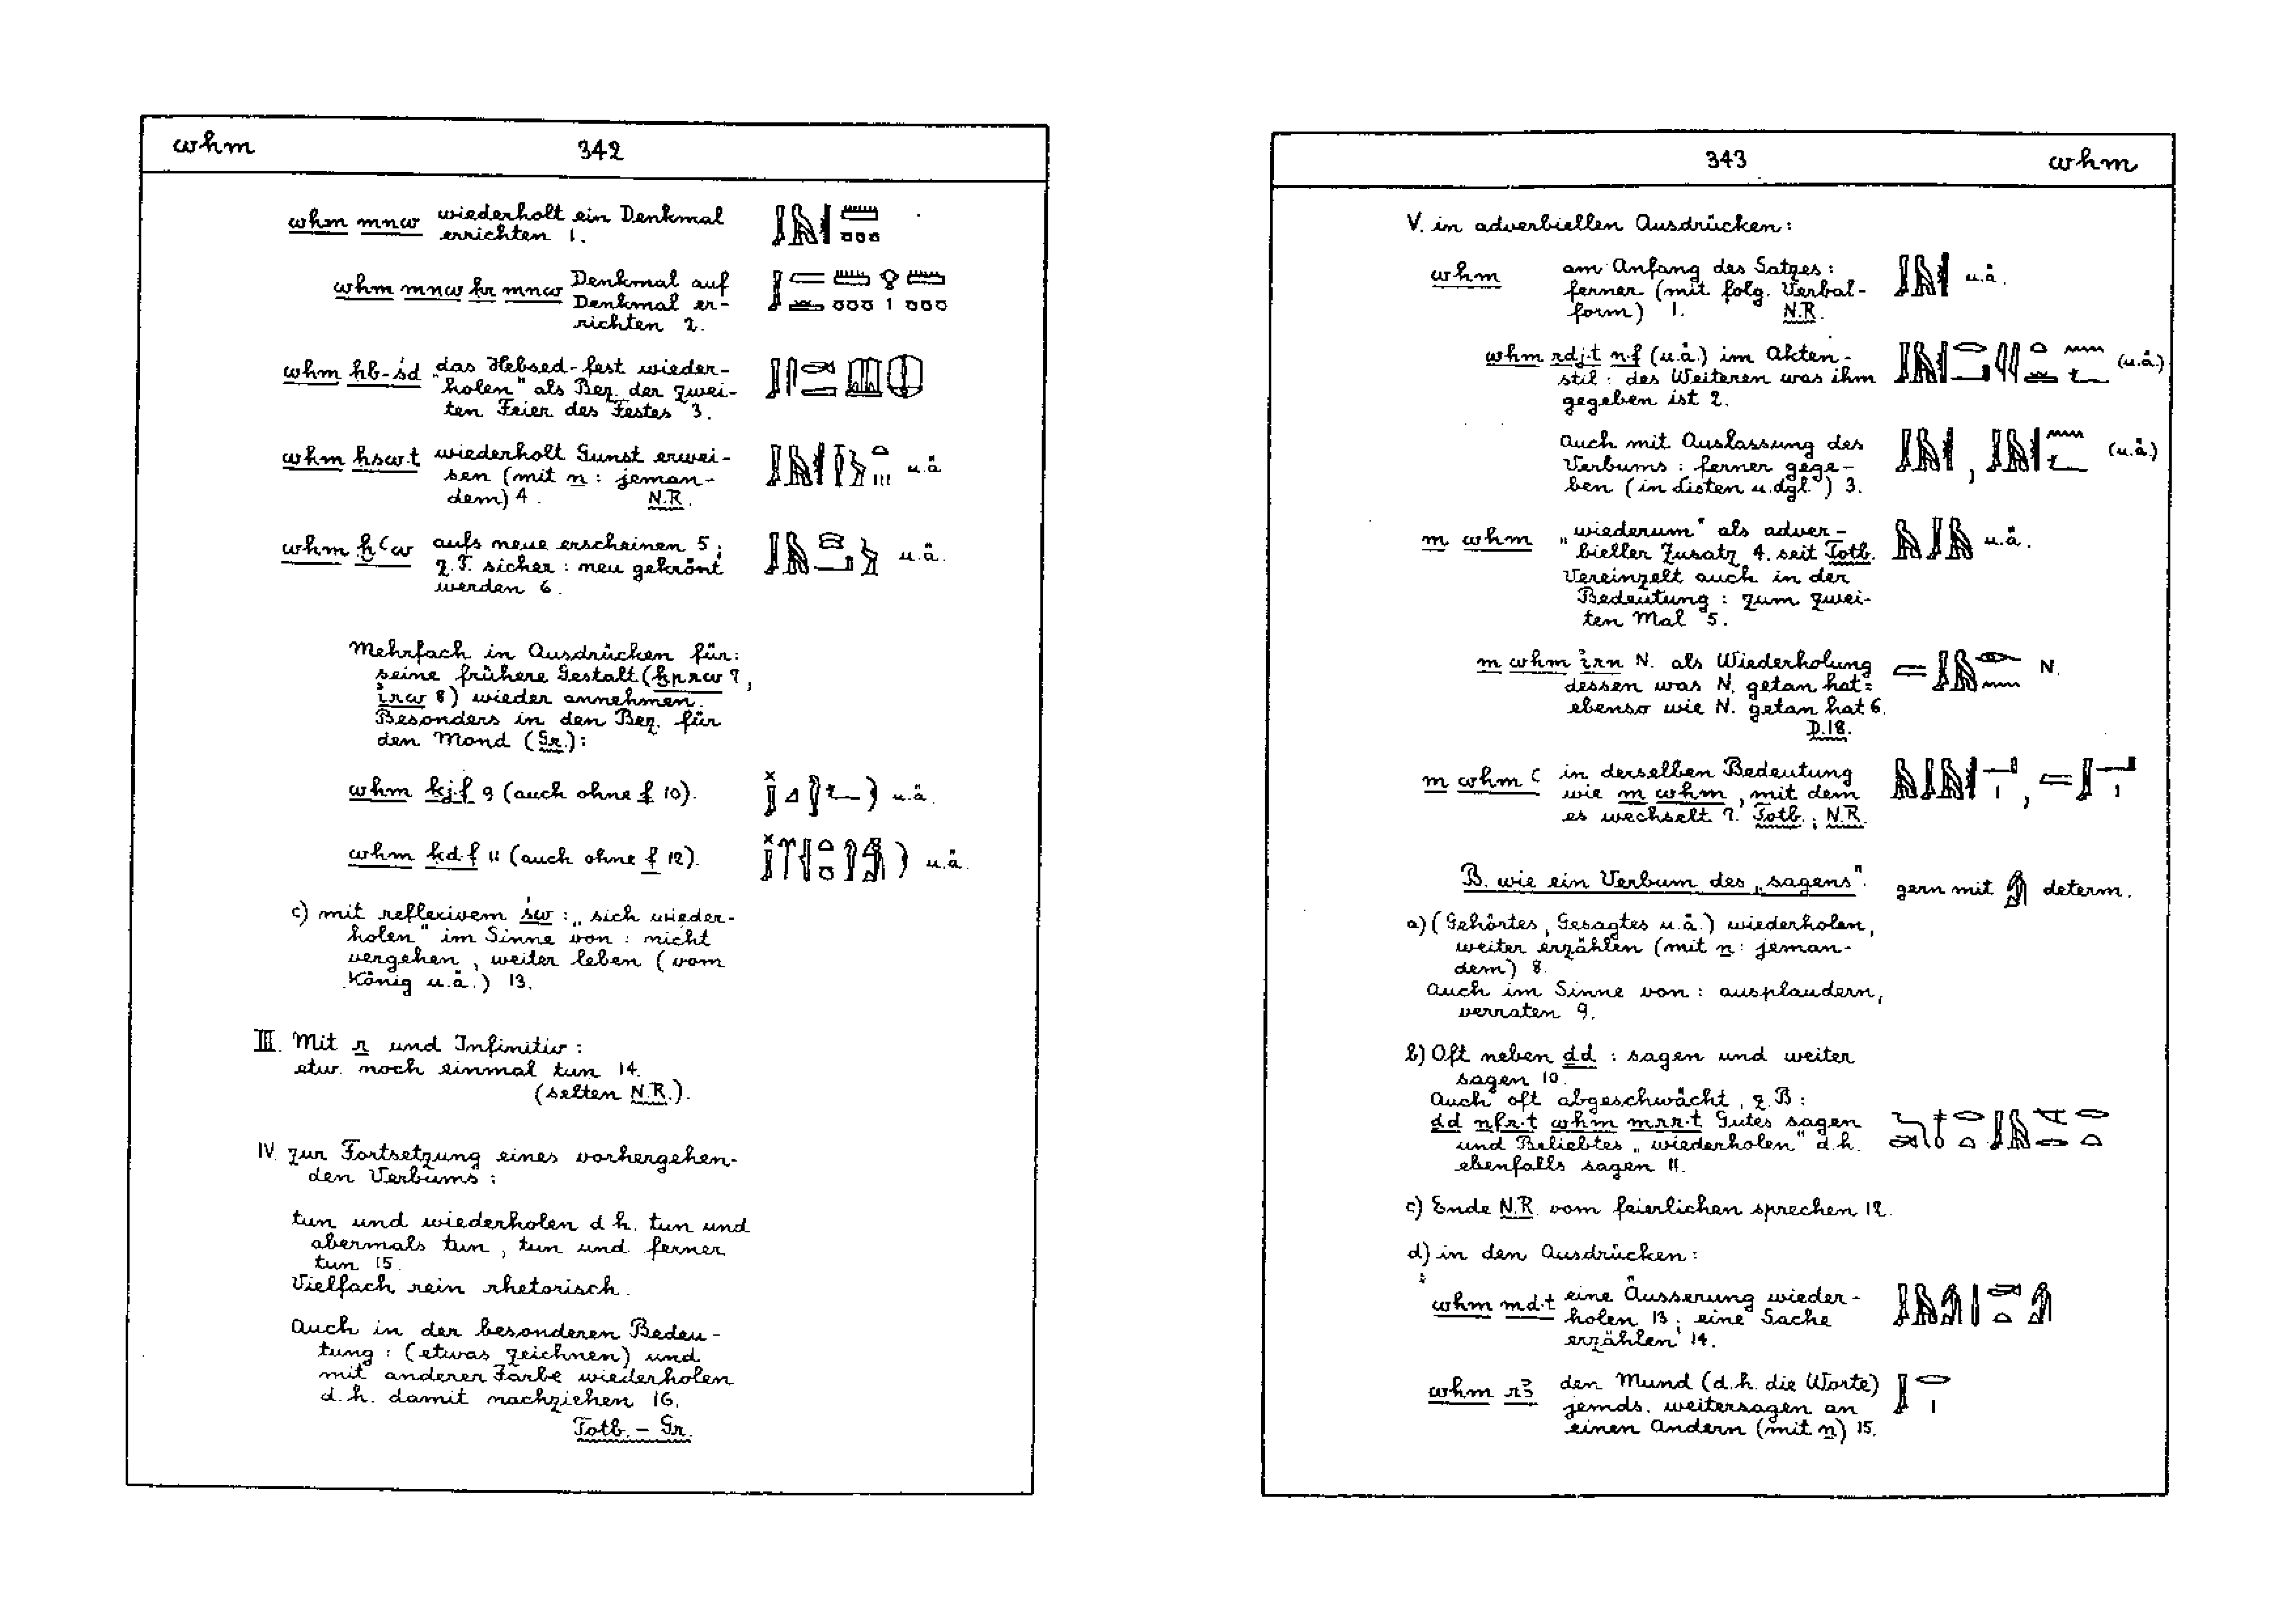 whm 342
whm mnw wiederholt ein Denkmal
errichten 1.
whm mnw ḥr mnw Denkmal auf
Denkmal er-
richten 2.
whm ḥb-śd „das Hebsed-fest wieder-
holen" als Bez. der zwei-
ten Feier des Festes 3.
whm ḥsw.t wiederholt Gunst erwei-
sen (mit n : jeman-
dem) 4. N.R. u.ä.
whm ḫꜥw aufs neue erscheinen 5;
z.T. sicher : neu gekrönt u.ä.
werden 6.
Mehrfach in Ausdrücken für:
seine frühere Gestalt (ḫprw 7,
irw 8) wieder annehmen.
Besonders in den Bez. für
den Mond (Gr.):
whm ḳj.f 9 (auch ohne f 10). u.ä.
whm ḳd.f 11 (auch ohne f 12). u.ä.
c) mit reflexivem św : „sich wieder-
holen" im Sinne von : nicht
vergehen, weiter leben (vom
König u.ä.) 13.
III. Mit r und Infinitiv :
etw. noch einmal tun 14.
(selten N.R.).
IV. zur Fortsetzung eines vorhergehen-
den Verbums :
tun und wiederholen d.h. tun und
abermals tun, tun und ferner
tun 15.
Vielfach rein rhetorisch.
Auch in der besonderen Bedeu-
tung : (etwas zeichnen) und
mit anderer Farbe wiederholen
d.h. damit nachziehen 16.
Totb. – Gr.
343 whm
V. in adverbiellen Ausdrücken :
whm am Anfang des Satzes : u.ä.
ferner (mit folg. Verbal-
form) 1. N.R.
whm rdj.t n.f (u.ä.) im Akten- (u.ä.)
stil : des Weiteren was ihm
gegeben ist 2.
Auch mit Auslassung des (u.ä.)
Verbums : ferner gege-
ben (in Listen u.dgl.) 3.
m whm „wiederum" als adver- u.ä.
bieller Zusatz 4. seit Totb.
Vereinzelt auch in der
Bedeutung : zum zwei-
ten Mal 5.
m whm irn N. als Wiederholung N.
dessen was N. getan hat =
ebenso wie N. getan hat 6.
D.18.
m whm ꜥ in derselben Bedeutung
wie m whm, mit dem
es wechselt 7. Totb.; N.R.
B. wie ein Verbum des „sagens". gern mit 𓀁 determ.
a) (Gehörtes, Gesagtes u.ä.) wiederholen,
weiter erzählen (mit n : jeman-
dem) 8.
Auch im Sinne von : ausplaudern,
verraten 9.
b) Oft neben dd : sagen und weiter
sagen 10.
Auch oft abgeschwächt, z.B :
dd nfr.t whm mrr.t Gutes sagen
und Beliebtes „wiederholen" d.h.
ebenfalls sagen 11.
c) Ende N.R. vom feierlichen sprechen 12.
d) in den Ausdrücken :
whm md.t eine Äusserung wieder-
holen 13; eine Sache
erzählen 14.
whm rꜣ den Mund (d.h. die Worte)
jemds. weitersagen an
einen Andern (mit n) 15.